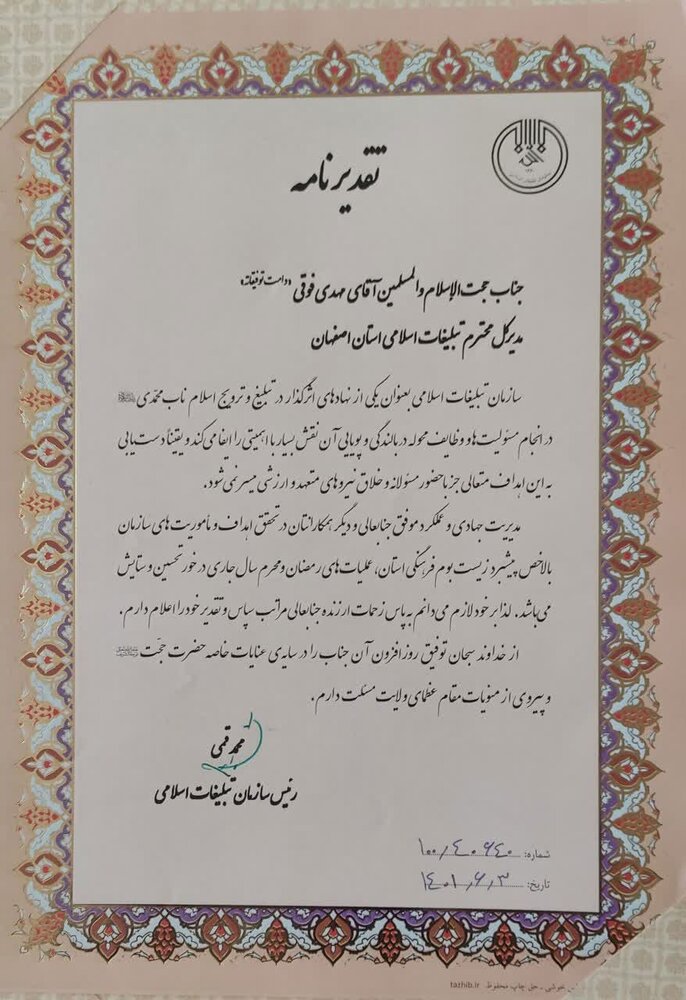 تقدیر نامه
جناب حجت الاسلام والمسلمین آقای مهدی فوقی «دامت توفیقاته»
مدیر کل محترم تبلیغات اسلامی استان اصفهان
سازمان تبلیغات اسلامی بعنوان یکی از نهادهای اثرگذار در تبلیغ و ترویج اسلام ناب محمّدی
در انجام مسئولیت‌ها و وظایف محوله در بالندگی و پویایی آن نقش بسیار با اهمیتی را ایفا می‌کند و یقیناً دست‌یابی
به این اهداف متعالی جز با حضور مسئولانه و خلاق نیروهای متعهد و ارزشی میسر نمی‌شود.
مدیریت جهادی و عملکرد موفق جنابعالی و دیگر همکارانتان در تحقق اهداف و مأموریت‌های سازمان
بالاخص پیشبرد زیست بوم فرهنگی استان، عملیات‌های رمضان و محرم سال جاری در خور تحسین و ستایش
می‌باشد. لذا بر خود لازم می‌دانم به پاس زحمات ارزنده جنابعالی مراتب سپاس و تقدیر خود را اعلام دارم.
از خداوند سبحان توفیق روز افزون آن جناب را در سایه‌ی عنایات خاصه حضرت حجّت
و پیروی از منویات مقام عظمای ولایت مسئلت دارم.
محمد قمی
رئیس سازمان تبلیغات اسلامی
شماره: ۱۰۰/۴۰۶۴۰
تاریخ: ۱۴۰۱/۶/۳
خوشی - حق چاپ محفوظ tazhib.ir